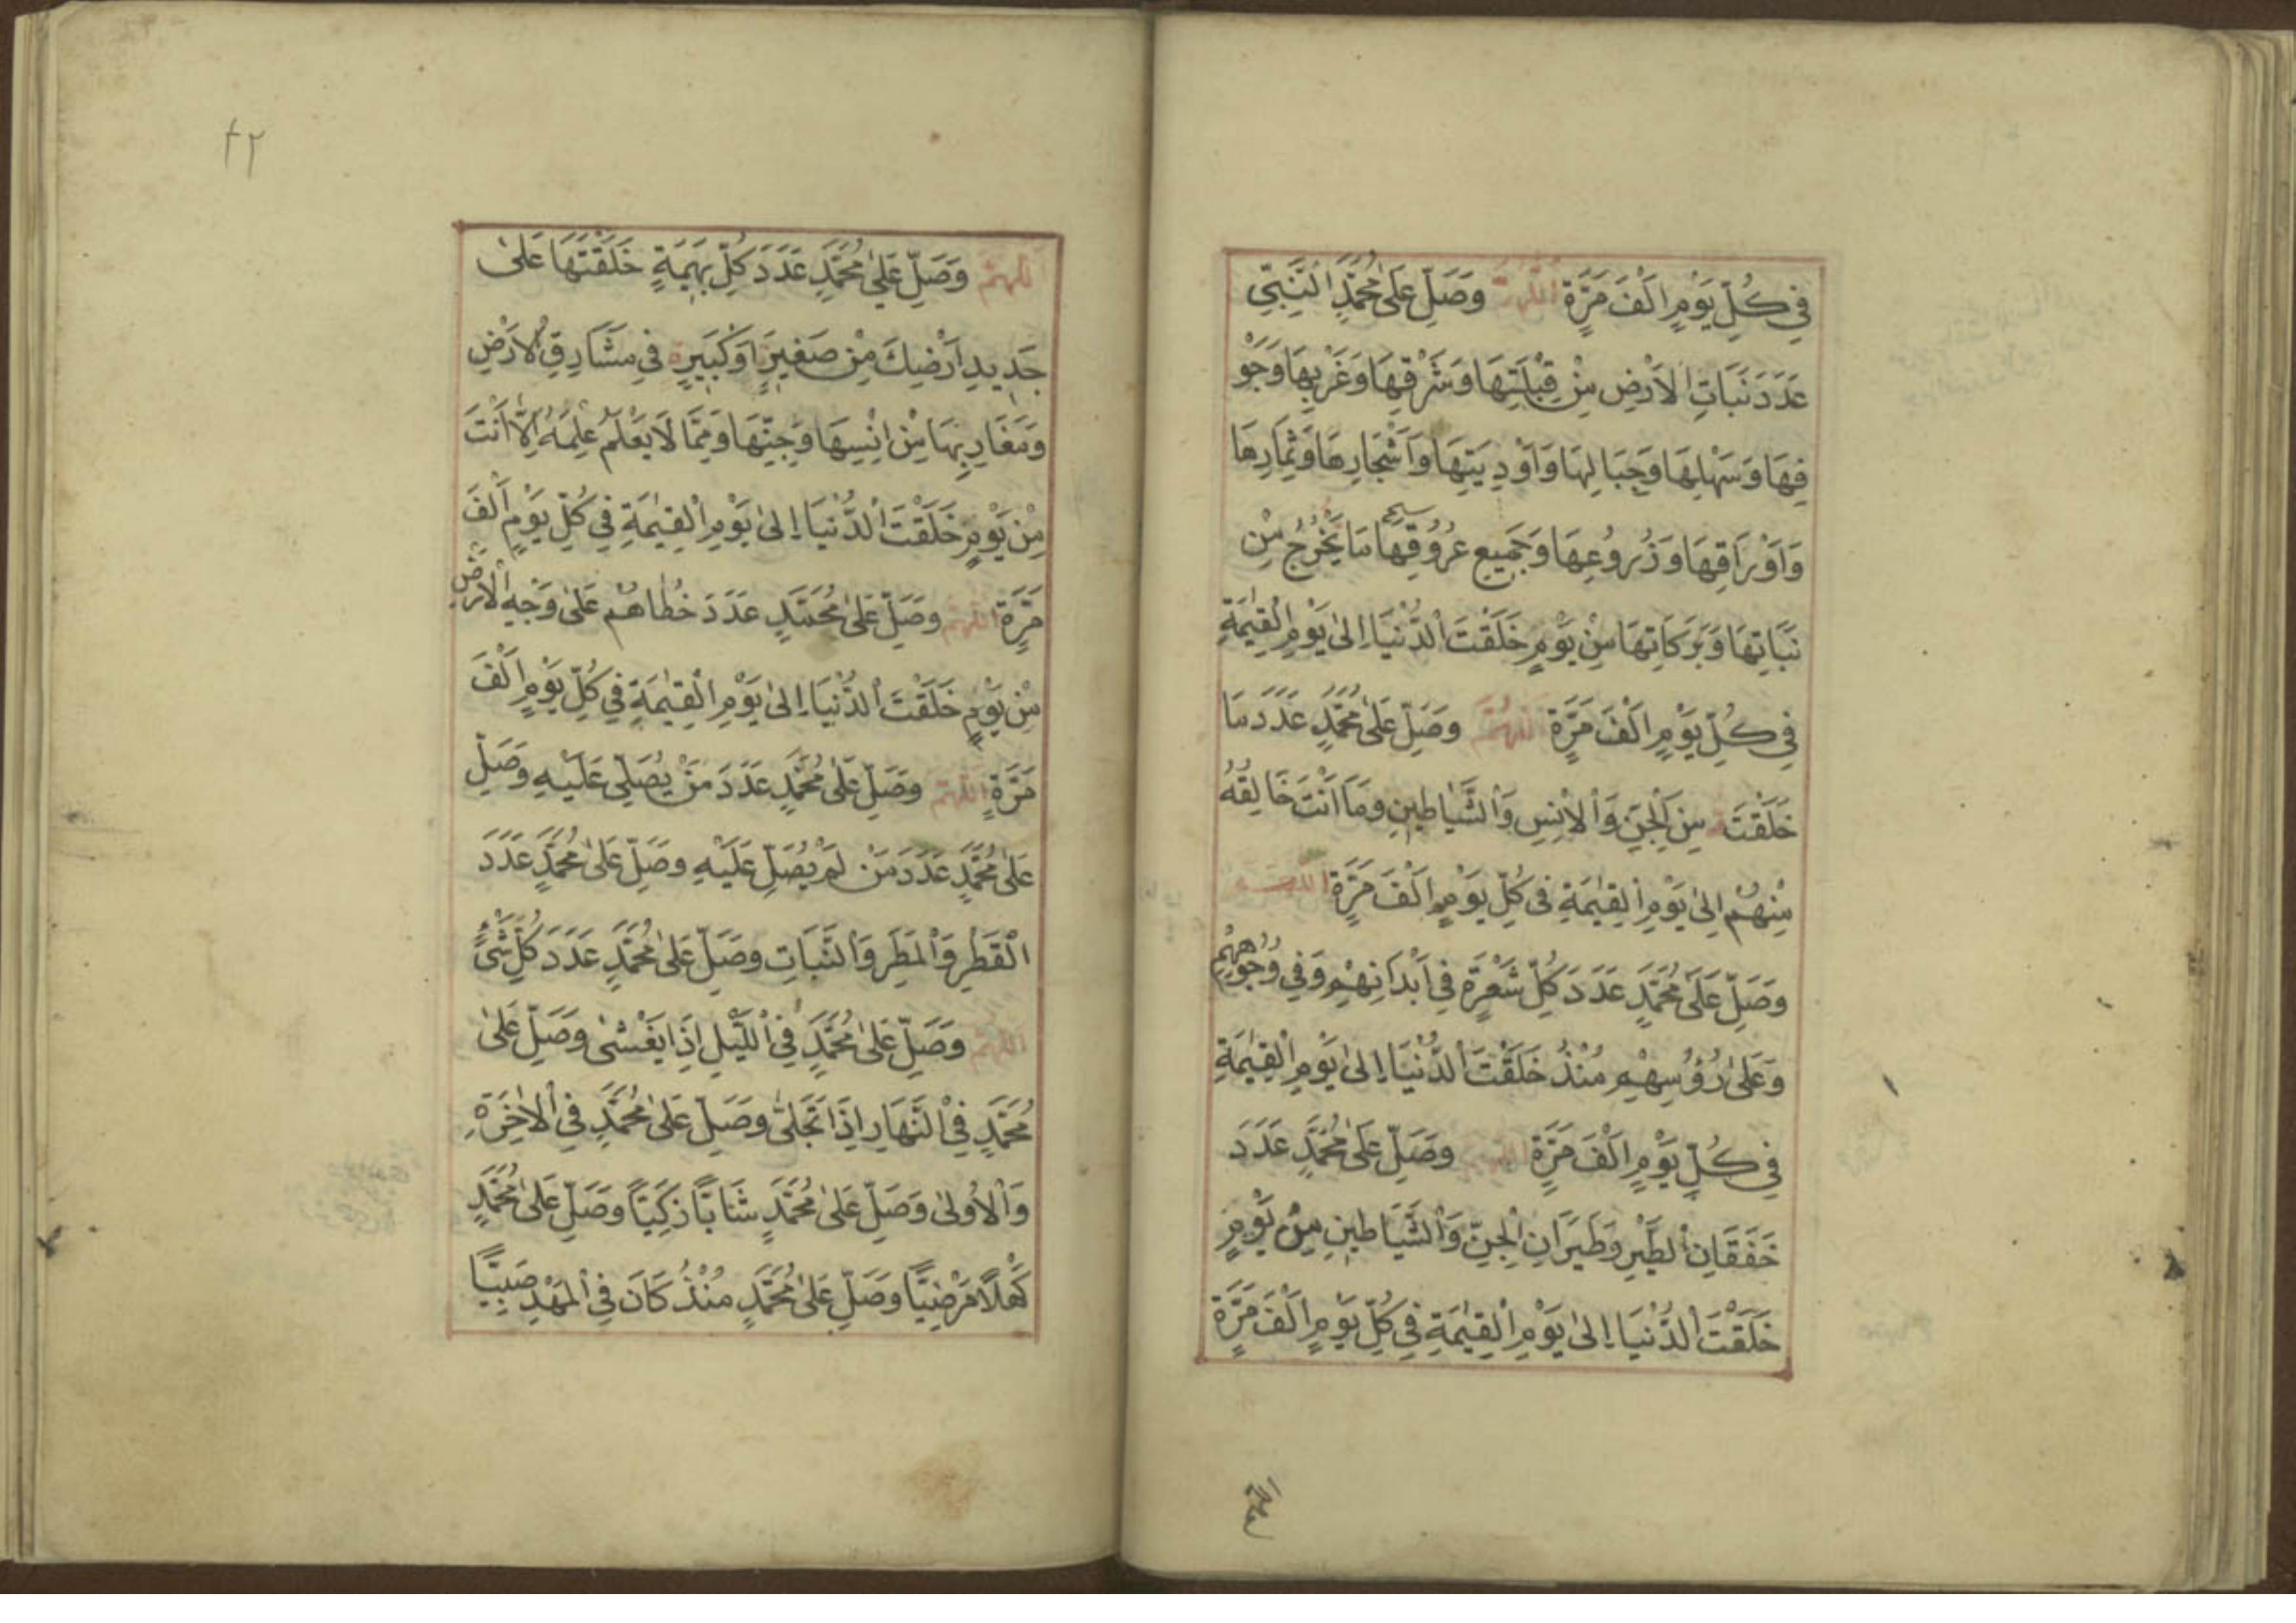 فِي كُلِّ يَوْمٍ اَلْفَ مَرَّةٍ اَللّٰهُمَّ وَصَلِّ عَلٰى مُحَمَّدٍ النَّبِيِّ
عَدَدَ نَبَاتِ الْاَرْضِ مِنْ قِبْلَتِهَا وَشَرْقِهَا وَغَرْبِهَا وَجَوْ
فِهَا وَسَهْلِهَا وَجِبَالِهَا وَاَوْدِيَتِهَا وَاَشْجَارِهَا وَثِمَارِهَا
وَاَوْرَاقِهَا وَزُرُوعِهَا وَجَمِيعِ عُرُوقِهَا مَا يَخْرُجُ مِنْ
نَبَاتِهَا وَبَرَكَاتِهَا مِنْ يَوْمٍ خَلَقْتَ الدُّنْيَا اِلٰى يَوْمِ الْقِيٰمَةِ
فِي كُلِّ يَوْمٍ اَلْفَ مَرَّةٍ اَللّٰهُمَّ وَصَلِّ عَلٰى مُحَمَّدٍ عَدَدَ مَا
خَلَقْتَ مِنَ الْجِنِّ وَالْاِنْسِ وَالشَّيَاطِينِ وَمَا اَنْتَ خَالِقُهُ
مِنْهُمْ اِلٰى يَوْمِ الْقِيٰمَةِ فِي كُلِّ يَوْمٍ اَلْفَ مَرَّةٍ اَللّٰهُمَّ
وَصَلِّ عَلٰى مُحَمَّدٍ عَدَدَ كُلِّ شَعْرَةٍ فِي اَبْدَانِهِمْ وَفِي وُجُوهِهِمْ
وَعَلٰى رُؤُسِهِمْ مُنْذُ خَلَقْتَ الدُّنْيَا اِلٰى يَوْمِ الْقِيٰمَةِ
فِي كُلِّ يَوْمٍ اَلْفَ مَرَّةٍ اَللّٰهُمَّ وَصَلِّ عَلٰى مُحَمَّدٍ عَدَدَ
خَفَقَانِ الطَّيْرِ وَطَيَرَانِ الْجِنِّ وَالشَّيَاطِينِ مِنْ يَوْمٍ
خَلَقْتَ الدُّنْيَا اِلٰى يَوْمِ الْقِيٰمَةِ فِي كُلِّ يَوْمٍ اَلْفَ مَرَّةٍ
٤٢
اَللّٰهُمَّ وَصَلِّ عَلٰى مُحَمَّدٍ عَدَدَ كُلِّ بَهِيمَةٍ خَلَقْتَهَا عَلٰى
جَدِيدِ اَرْضِكَ مِنْ صَغِيرَةٍ اَوْ كَبِيرَةٍ فِي مَشَارِقِ الْاَرْضِ
وَمَغَارِبِهَا مِنْ اِنْسِهَا وَجِنِّهَا وَمِمَّا لَا يَعْلَمُ عِلْمَهُ اِلَّا اَنْتَ
مِنْ يَوْمٍ خَلَقْتَ الدُّنْيَا اِلٰى يَوْمِ الْقِيٰمَةِ فِي كُلِّ يَوْمٍ اَلْفَ
مَرَّةٍ اَللّٰهُمَّ وَصَلِّ عَلٰى مُحَمَّدٍ عَدَدَ خُطَاهُمْ عَلٰى وَجْهِ الْاَرْضِ
مِنْ يَوْمٍ خَلَقْتَ الدُّنْيَا اِلٰى يَوْمِ الْقِيٰمَةِ فِي كُلِّ يَوْمٍ اَلْفَ
مَرَّةٍ اَللّٰهُمَّ وَصَلِّ عَلٰى مُحَمَّدٍ عَدَدَ مَنْ يُصَلِّي عَلَيْهِ وَصَلِّ
عَلٰى مُحَمَّدٍ عَدَدَ مَنْ لَمْ يُصَلِّ عَلَيْهِ وَصَلِّ عَلٰى مُحَمَّدٍ عَدَدَ
الْقَطْرِ وَالْمَطَرِ وَالنَّبَاتِ وَصَلِّ عَلٰى مُحَمَّدٍ عَدَدَ كُلِّ شَيْءٍ
اَللّٰهُمَّ وَصَلِّ عَلٰى مُحَمَّدٍ فِي الَّيْلِ اِذَا يَغْشٰى وَصَلِّ عَلٰى
مُحَمَّدٍ فِي النَّهَارِ اِذَا تَجَلّٰى وَصَلِّ عَلٰى مُحَمَّدٍ فِي الْاٰخِرَةِ
وَالْاُولٰى وَصَلِّ عَلٰى مُحَمَّدٍ شَابًّا زَكِيًّا وَصَلِّ عَلٰى مُحَمَّدٍ
كَهْلًا مَرْضِيًّا وَصَلِّ عَلٰى مُحَمَّدٍ مُنْذُ كَانَ فِي الْمَهْدِ صَبِيًّا